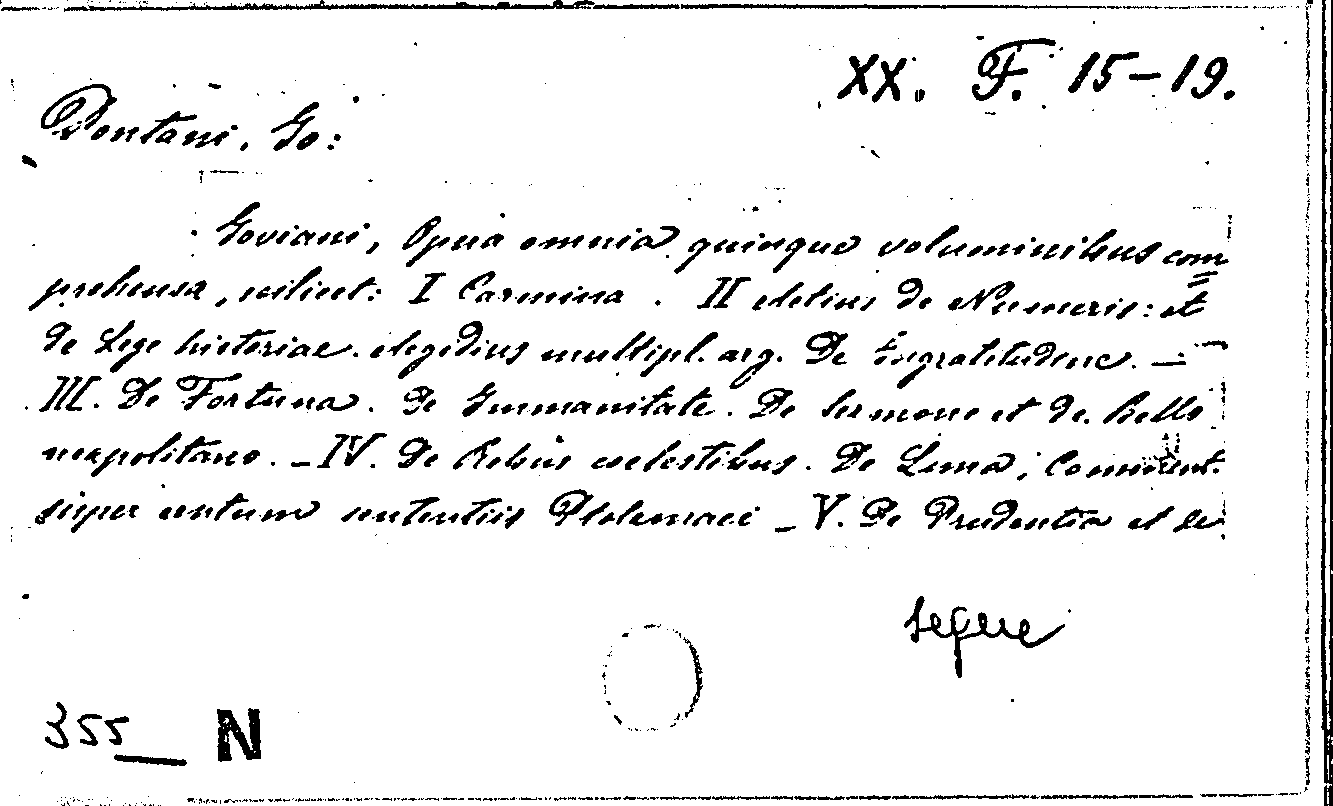 XX. F. 15-19.
Pontani. Jo:
Joviani, Opera omnia quinque voluminibus com
prehensa, scilicet: I Carmina. II de Numeris: et
de Lege historiae. multipl. arg. De Ingratitudine. —
III. De Fortuna. De Immanitate. De Sermone et de Bello
neapolitano. — IV. De Rebus coelestibus. De Luna; Comment.
super centum sententiis Ptolemaei — V. De Prudentia et de
segue
355 N